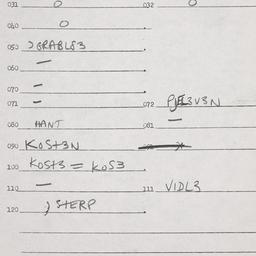 031 0 032 0
040 0
050 ƆGRABLƐ3 .
060 —
070 —
071 — . 072 PJƐ3V3N
080 HANT 081 —
090 KOSt3N
100 KOSt3 = KOS3
110 — 111 VIDL3
120 ; StERP .